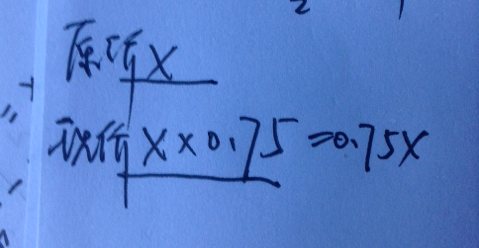 原价X
现价X×0.75=0.75X